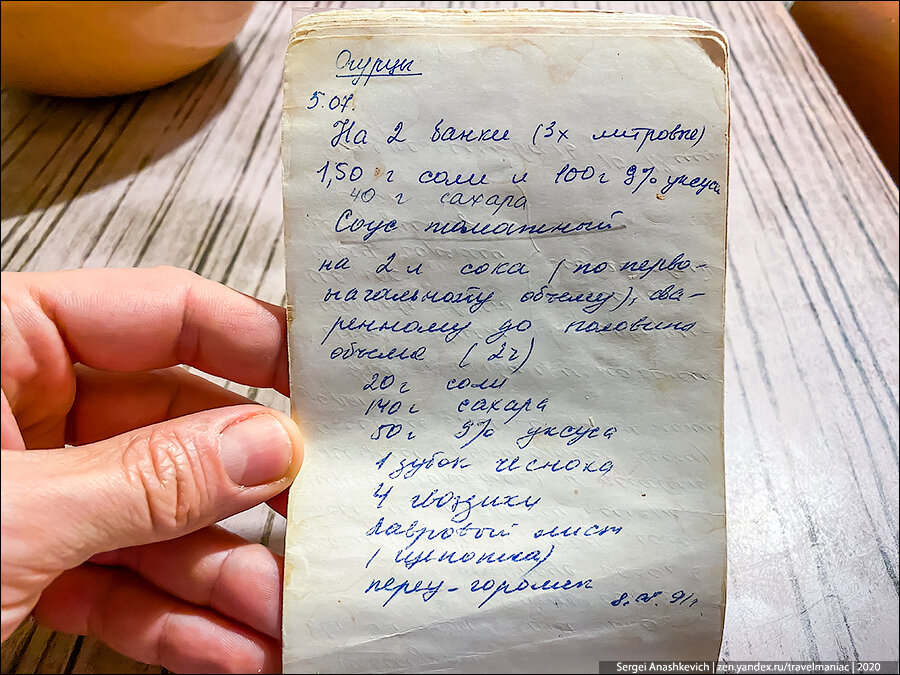 Огурцы
5.07.
На 2 банки (3х литровые)
1,50 г соли и 100г 9% уксуса
40 г сахара
Соус томатный
на 2 л сока (по перво-
начальному объему), сва-
ренному до половины
объема (2ч)
20г соли
140г сахара
50г 9% уксуса
1 зубок чеснока
4 гвоздики
лавровый лист
(щепотка)
перец-горошек
91г.
Sergei Anashkevich | zen.yandex.ru/travelmaniac | 2020